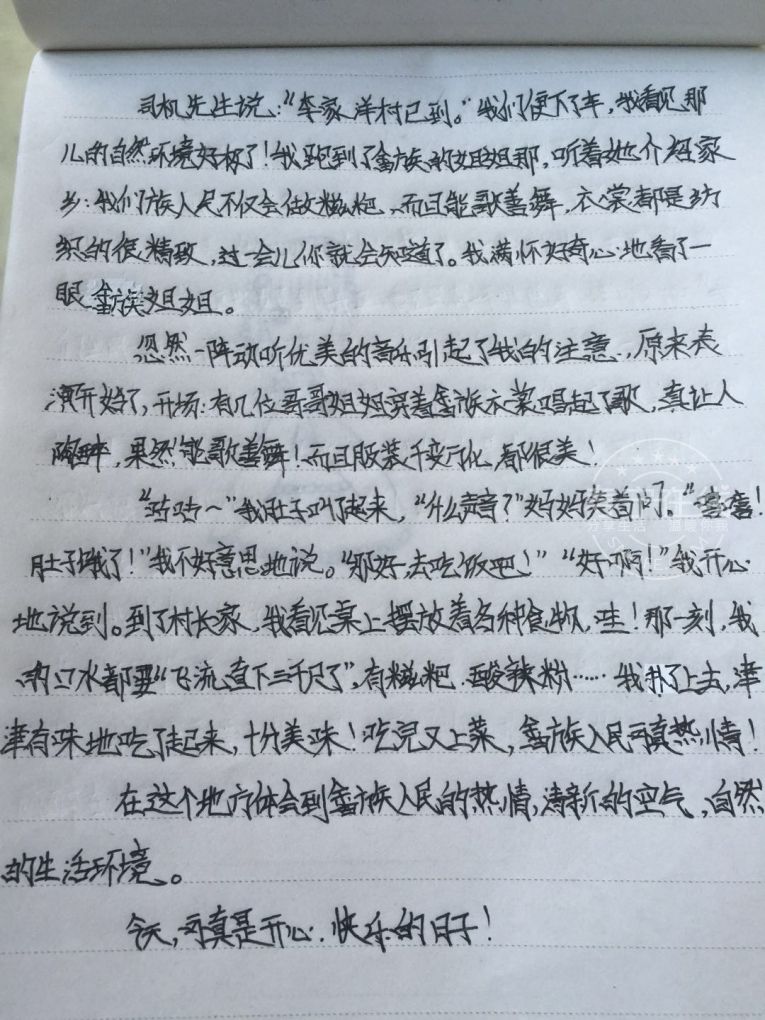 司机先生说：“李家洋村已到。”我们便下了车，我看见那
儿的自然环境好极了！我跑到了畲族的姐姐那，听着她介绍家
乡：我们族人民不仅会做糍粑、而且能歌善舞，衣裳都是纺
织的很精致，过一会儿你就会知道了。我满怀好奇心地看了一
眼畲族姐姐。
忽然一阵动听优美的音乐引起了我的注意，原来表
演开始了，开场：有几位哥哥姐姐穿着畲族衣裳唱起了歌，真让人
陶醉，果然能歌善舞！而且服装千变万化，都很美！
“咕咕～”我肚子叫了起来，“什么声音？”妈妈笑着问。“嘻嘻！
肚子饿了！”我不好意思地说。“那好，去吃饭吧！”“好啊！”我开心
地说到。到了村长家，我看见桌上摆放着各种食物，哇！那一刻，我
的口水都要“飞流直下三千尺了”，有糍粑、酸辣粉……我扑了上去，津
津有味地吃了起来，十分美味！吃完又上菜，畲族人民可真热情！
在这个地方体会到畲族人民的热情，清新的空气，自然
的生活环境。
今天，可真是开心、快乐的日子！